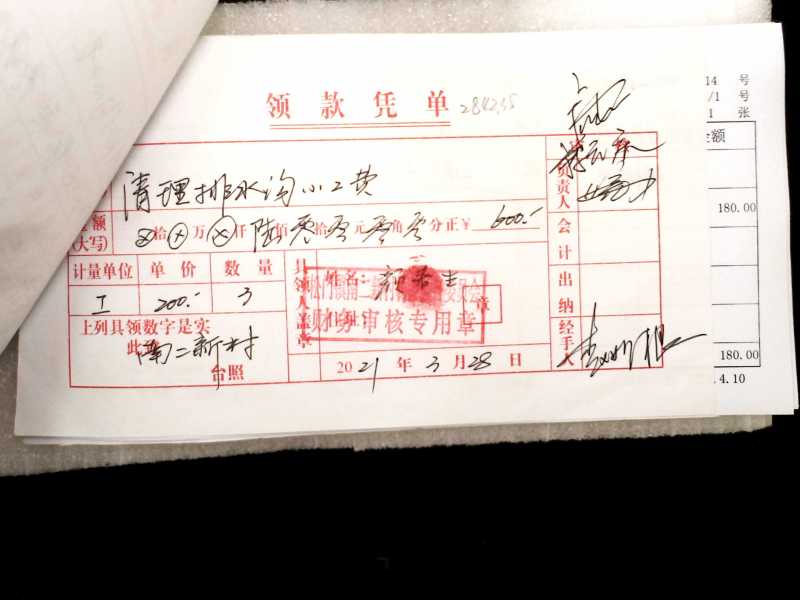 领款凭单
清理排水沟小工费
金额(大写) ⊗拾⊗万⊗仟陆佰零拾零元零角零分正¥600.-
计量单位 单价 数量
工 200.- 3
上列具领数字是实
此
南二新村
台照
具领人盖章
姓名:
章
财务审核专用章
2021年3月28日
负责人
会计
出纳
经手人
14 号
/1 号
1 张
金额
180.00
180.00
.4.10